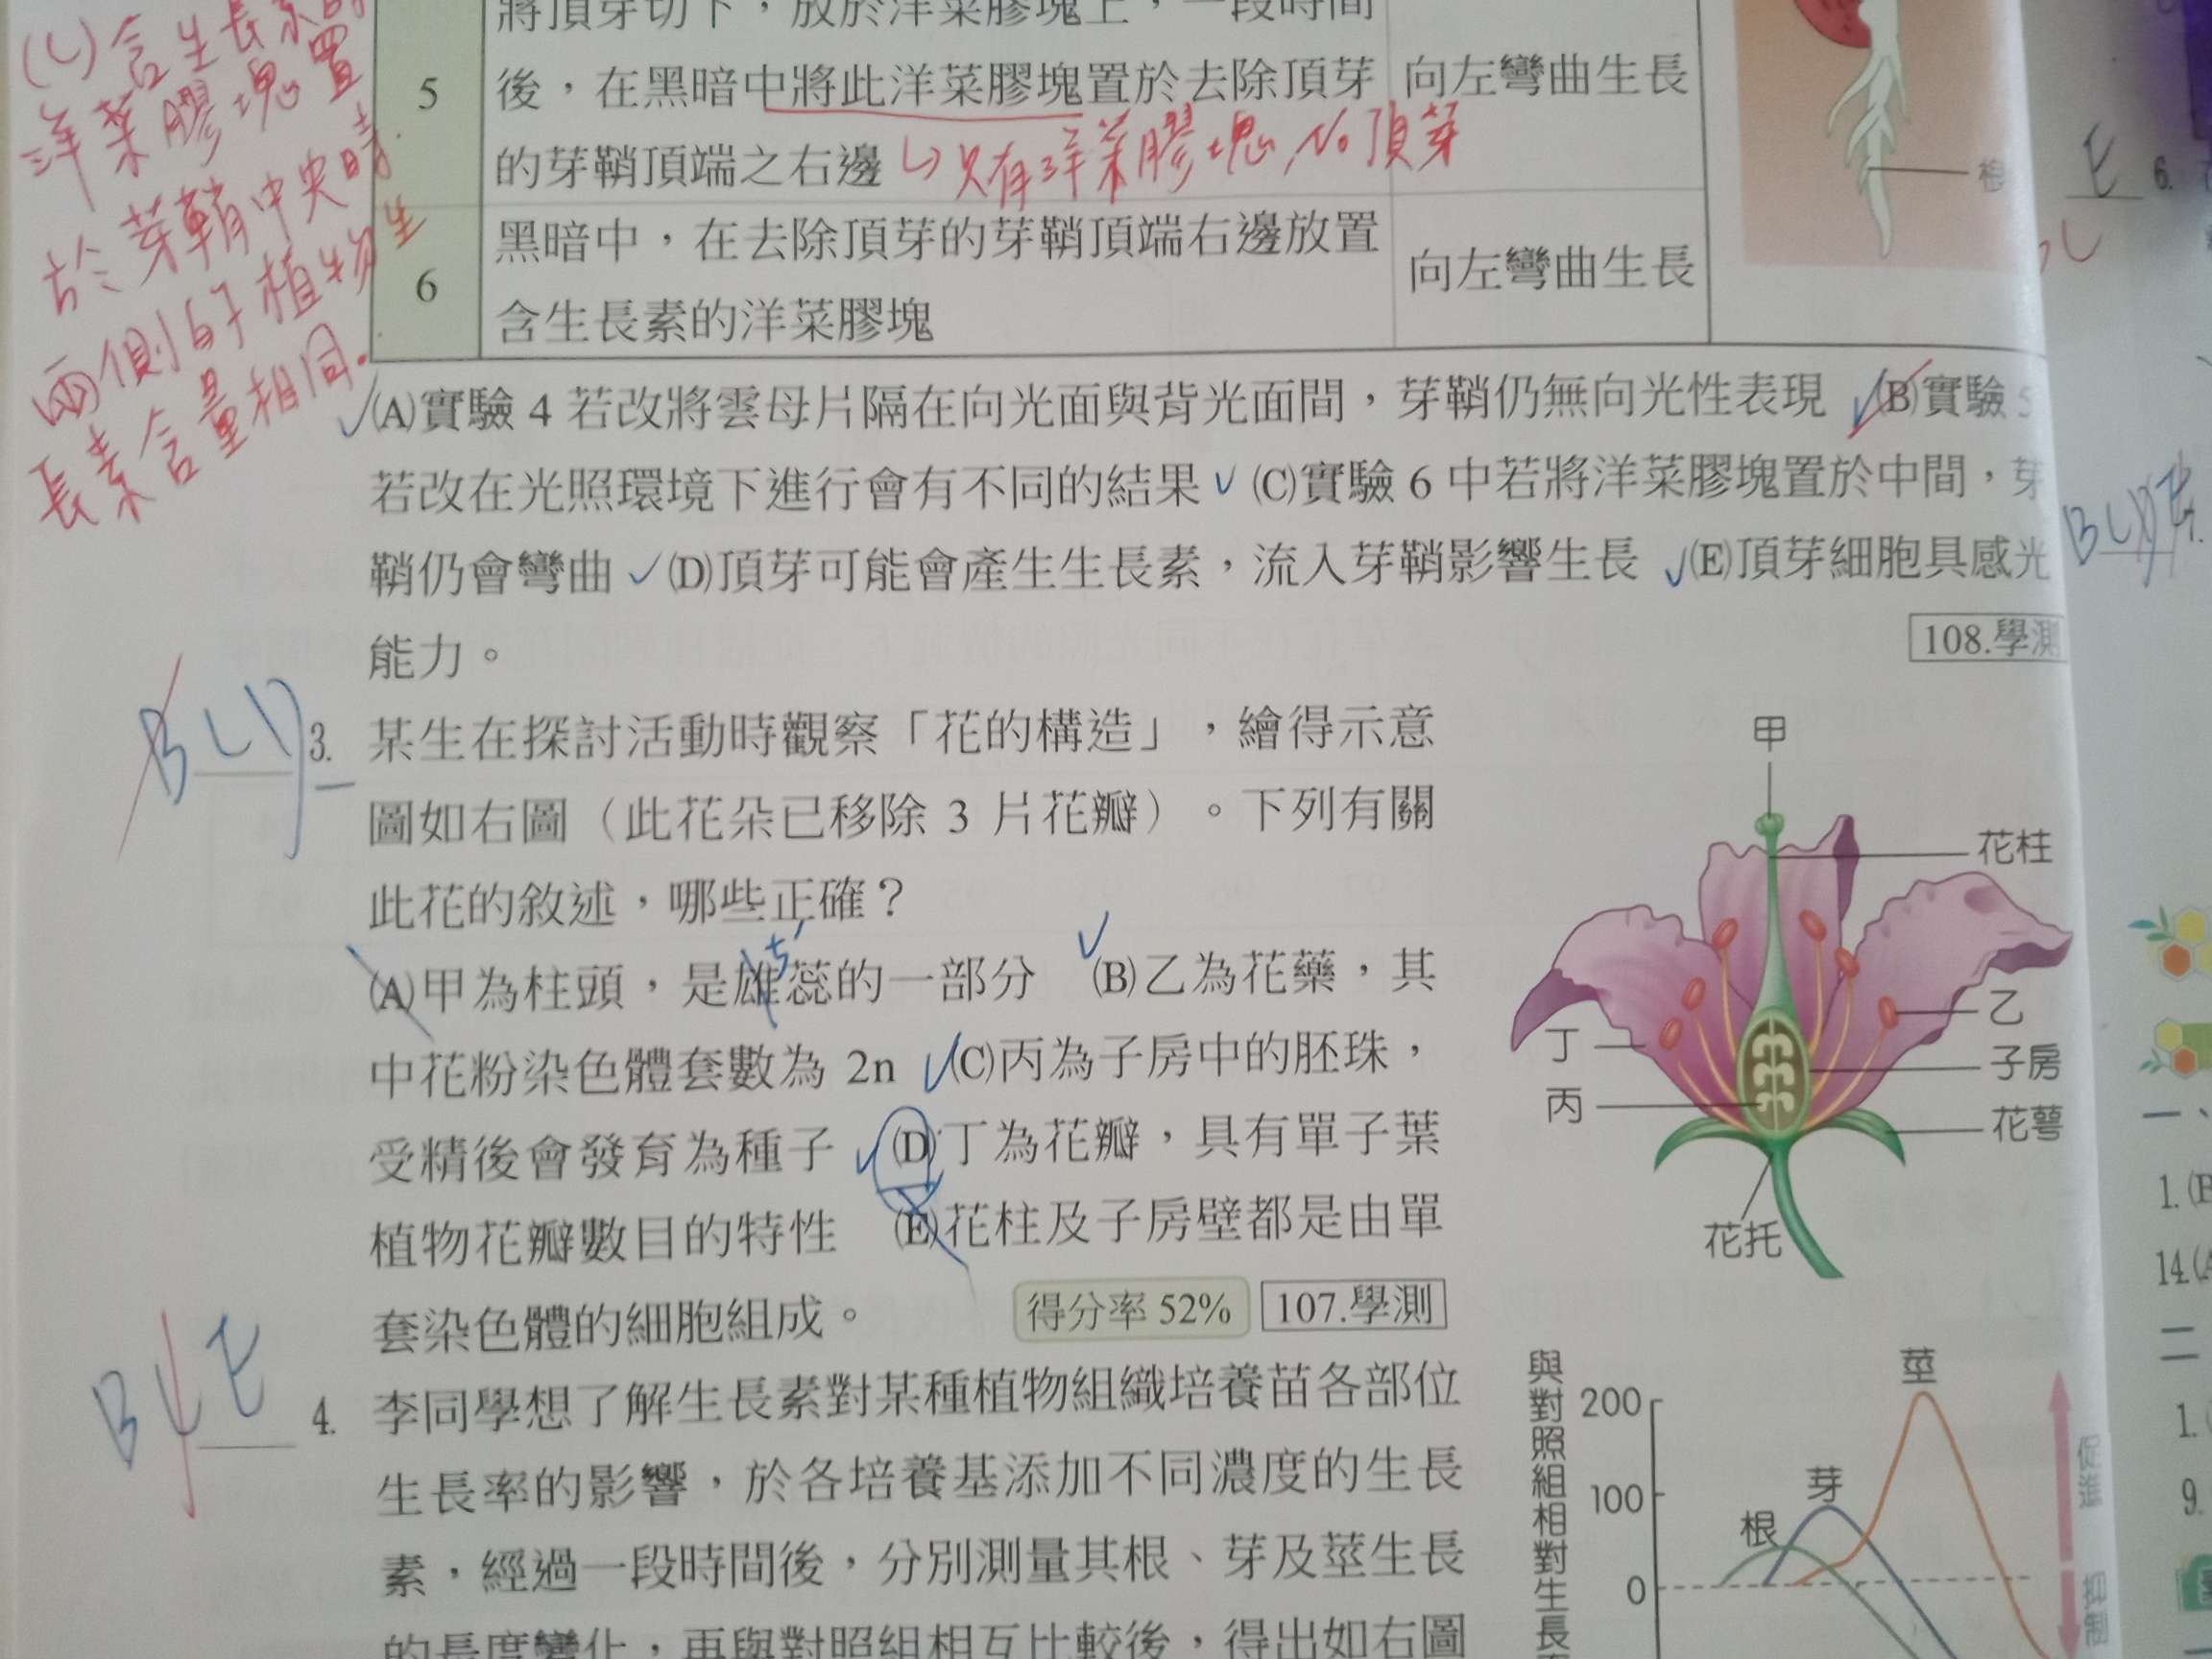 將頂芽切下，放於洋菜膠塊上，一段時間
5 後，在黑暗中將此洋菜膠塊置於去除頂芽 向左彎曲生長
的芽鞘頂端之右邊 只有洋菜膠塊 No 頂芽
黑暗中，在去除頂芽的芽鞘頂端右邊放置
6 向左彎曲生長
含生長素的洋菜膠塊
(C)含生長素的
洋菜膠塊置
於芽鞘中央時.
兩側的植物生
長素含量相同.
根
E 6.
(A)實驗 4 若改將雲母片隔在向光面與背光面間，芽鞘仍無向光性表現 (B)實驗 5
若改在光照環境下進行會有不同的結果 (C)實驗 6 中若將洋菜膠塊置於中間，芽
鞘仍會彎曲 (D)頂芽可能會產生生長素，流入芽鞘影響生長 (E)頂芽細胞具感光
能力。
108.學測
BCD 3. 某生在探討活動時觀察「花的構造」，繪得示意
圖如右圖（此花朵已移除 3 片花瓣）。下列有關
此花的敘述，哪些正確？
(A)甲為柱頭，是雄蕊的一部分 (B)乙為花藥，其
中花粉染色體套數為 2n (C)丙為子房中的胚珠，
受精後會發育為種子 (D)丁為花瓣，具有單子葉
植物花瓣數目的特性 (E)花柱及子房壁都是由單
套染色體的細胞組成。 得分率 52% 107.學測
甲
花柱
乙
丁
子房
丙
花萼
花托
4. 李同學想了解生長素對某種植物組織培養苗各部位
生長率的影響，於各培養基添加不同濃度的生長
素，經過一段時間後，分別測量其根、芽及莖生長
的長度變化，再與對照組相互比較後，得出如右圖
與對照組相對生長
200
100
0
莖
芽
根
促進
抑制
一、
14.(A
二
1.
9.